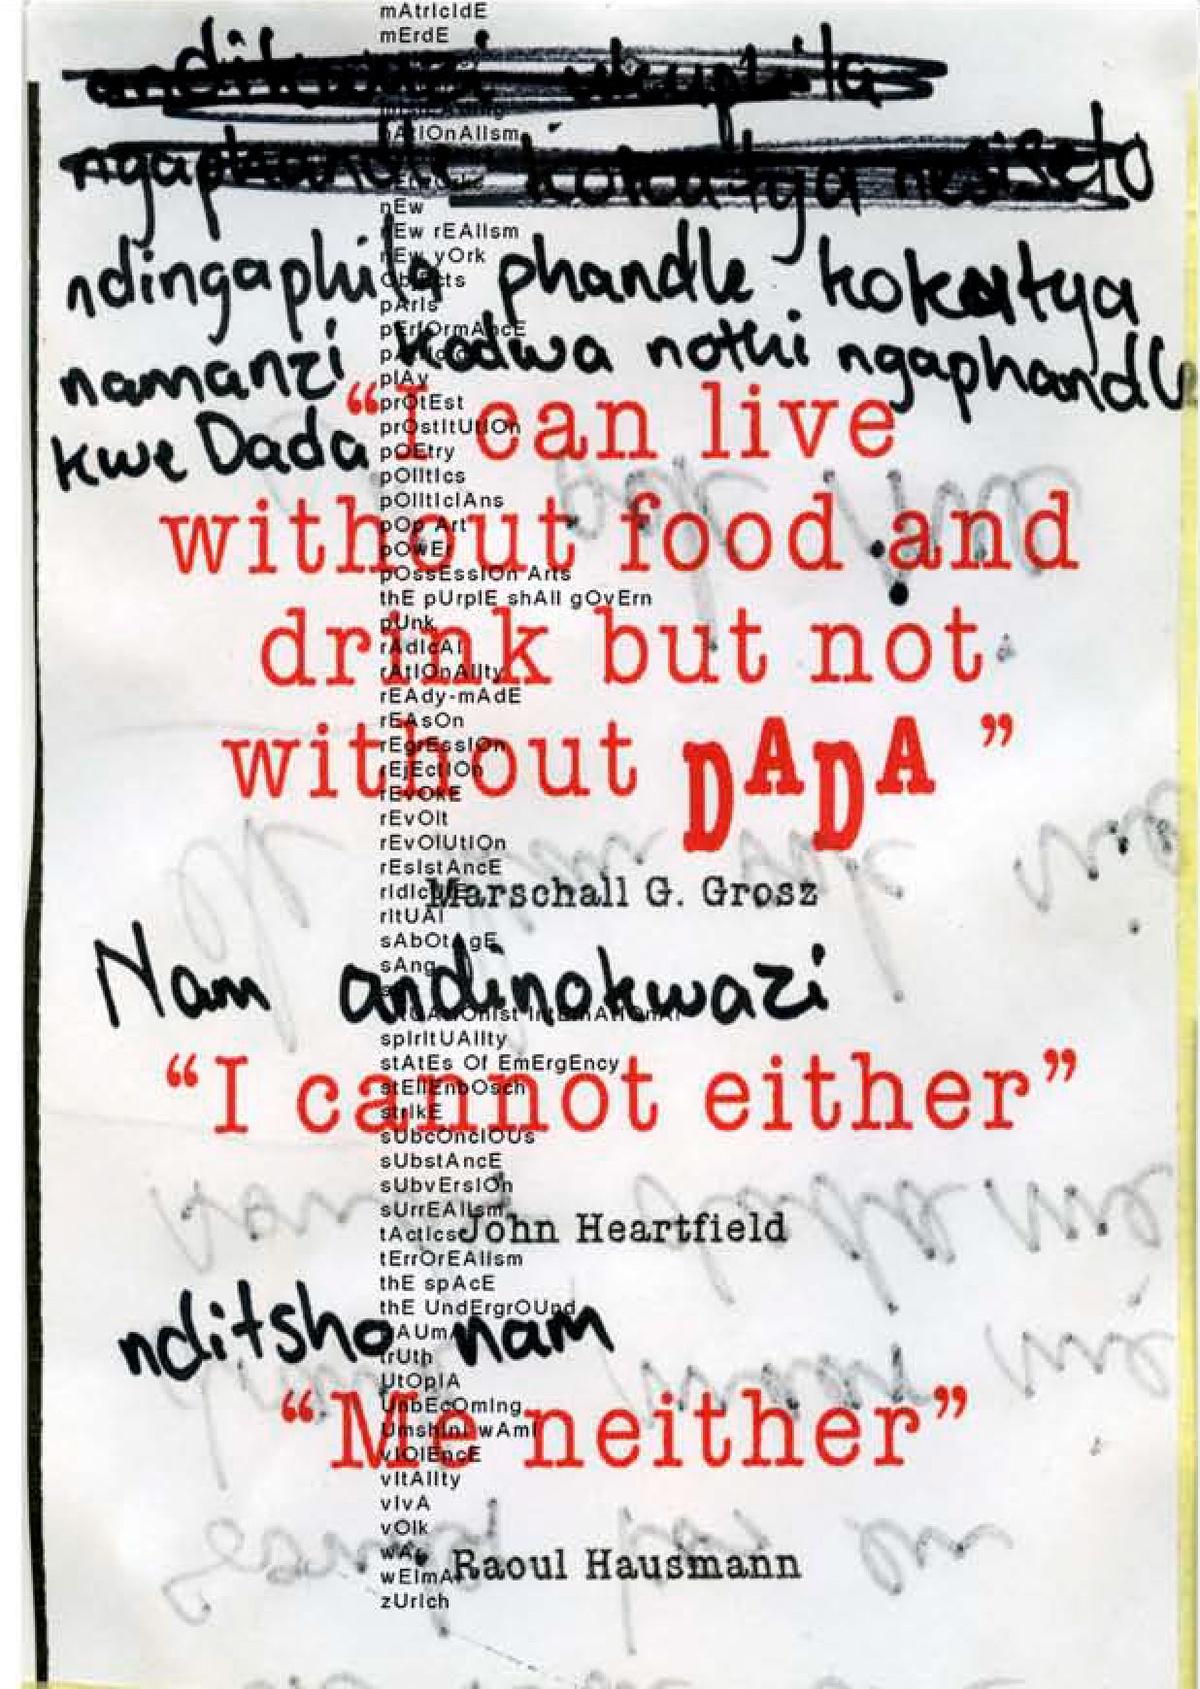 mAtrIcIdE
mErdE
nAtIOnAlIsm
nEw
nEw rEAlIsm
nEw yOrk
ObjEcts
pArIs
pErfOrmAncE
plAy
prOtEst
prOstItUtIOn
pOEtry
pOlItIcs
pOlItIcIAns
pOp Art
pOwEr
pOssEssIOn Arts
thE pUrplE shAll gOvErn
pUnk
rAdIcAl
rAtIOnAlIty
rEAdy-mAdE
rEAsOn
rEgrEssIOn
rEjEctIOn
rEvOkE
rEvOlt
rEvOlUtIOn
rEsIstAncE
rItUAl
sAbOtAgE
sAng
sItUAtIOnIst IntErnAtIOnAl
spIrItUAlIty
stAtEs Of EmErgEncy
stEllEnbOsch
strIkE
sUbcOncIOUs
sUbstAncE
sUbvErsIOn
sUrrEAlIsm
tActIcs
tErrOrEAlIsm
thE spAcE
thE UndErgrOUnd
trAUmA
trUth
UtOpIA
UnbEcOmIng
UmshInI wAmI
vIOlEncE
vItAlIty
vIvA
vOlk
wAr
wEImAr
zUrIch
ngaphandle kokutya nesiselo
ndingaphila phandle kokutya
namanzi kodwa nothi ngaphandle
kwe Dada
“I can live
without food and
drink but not
without DADA ”
Marschall G. Grosz
Nam andinokwazi
“I cannot either”
John Heartfield
nditsho nam
“Me neither”
Raoul Hausmann